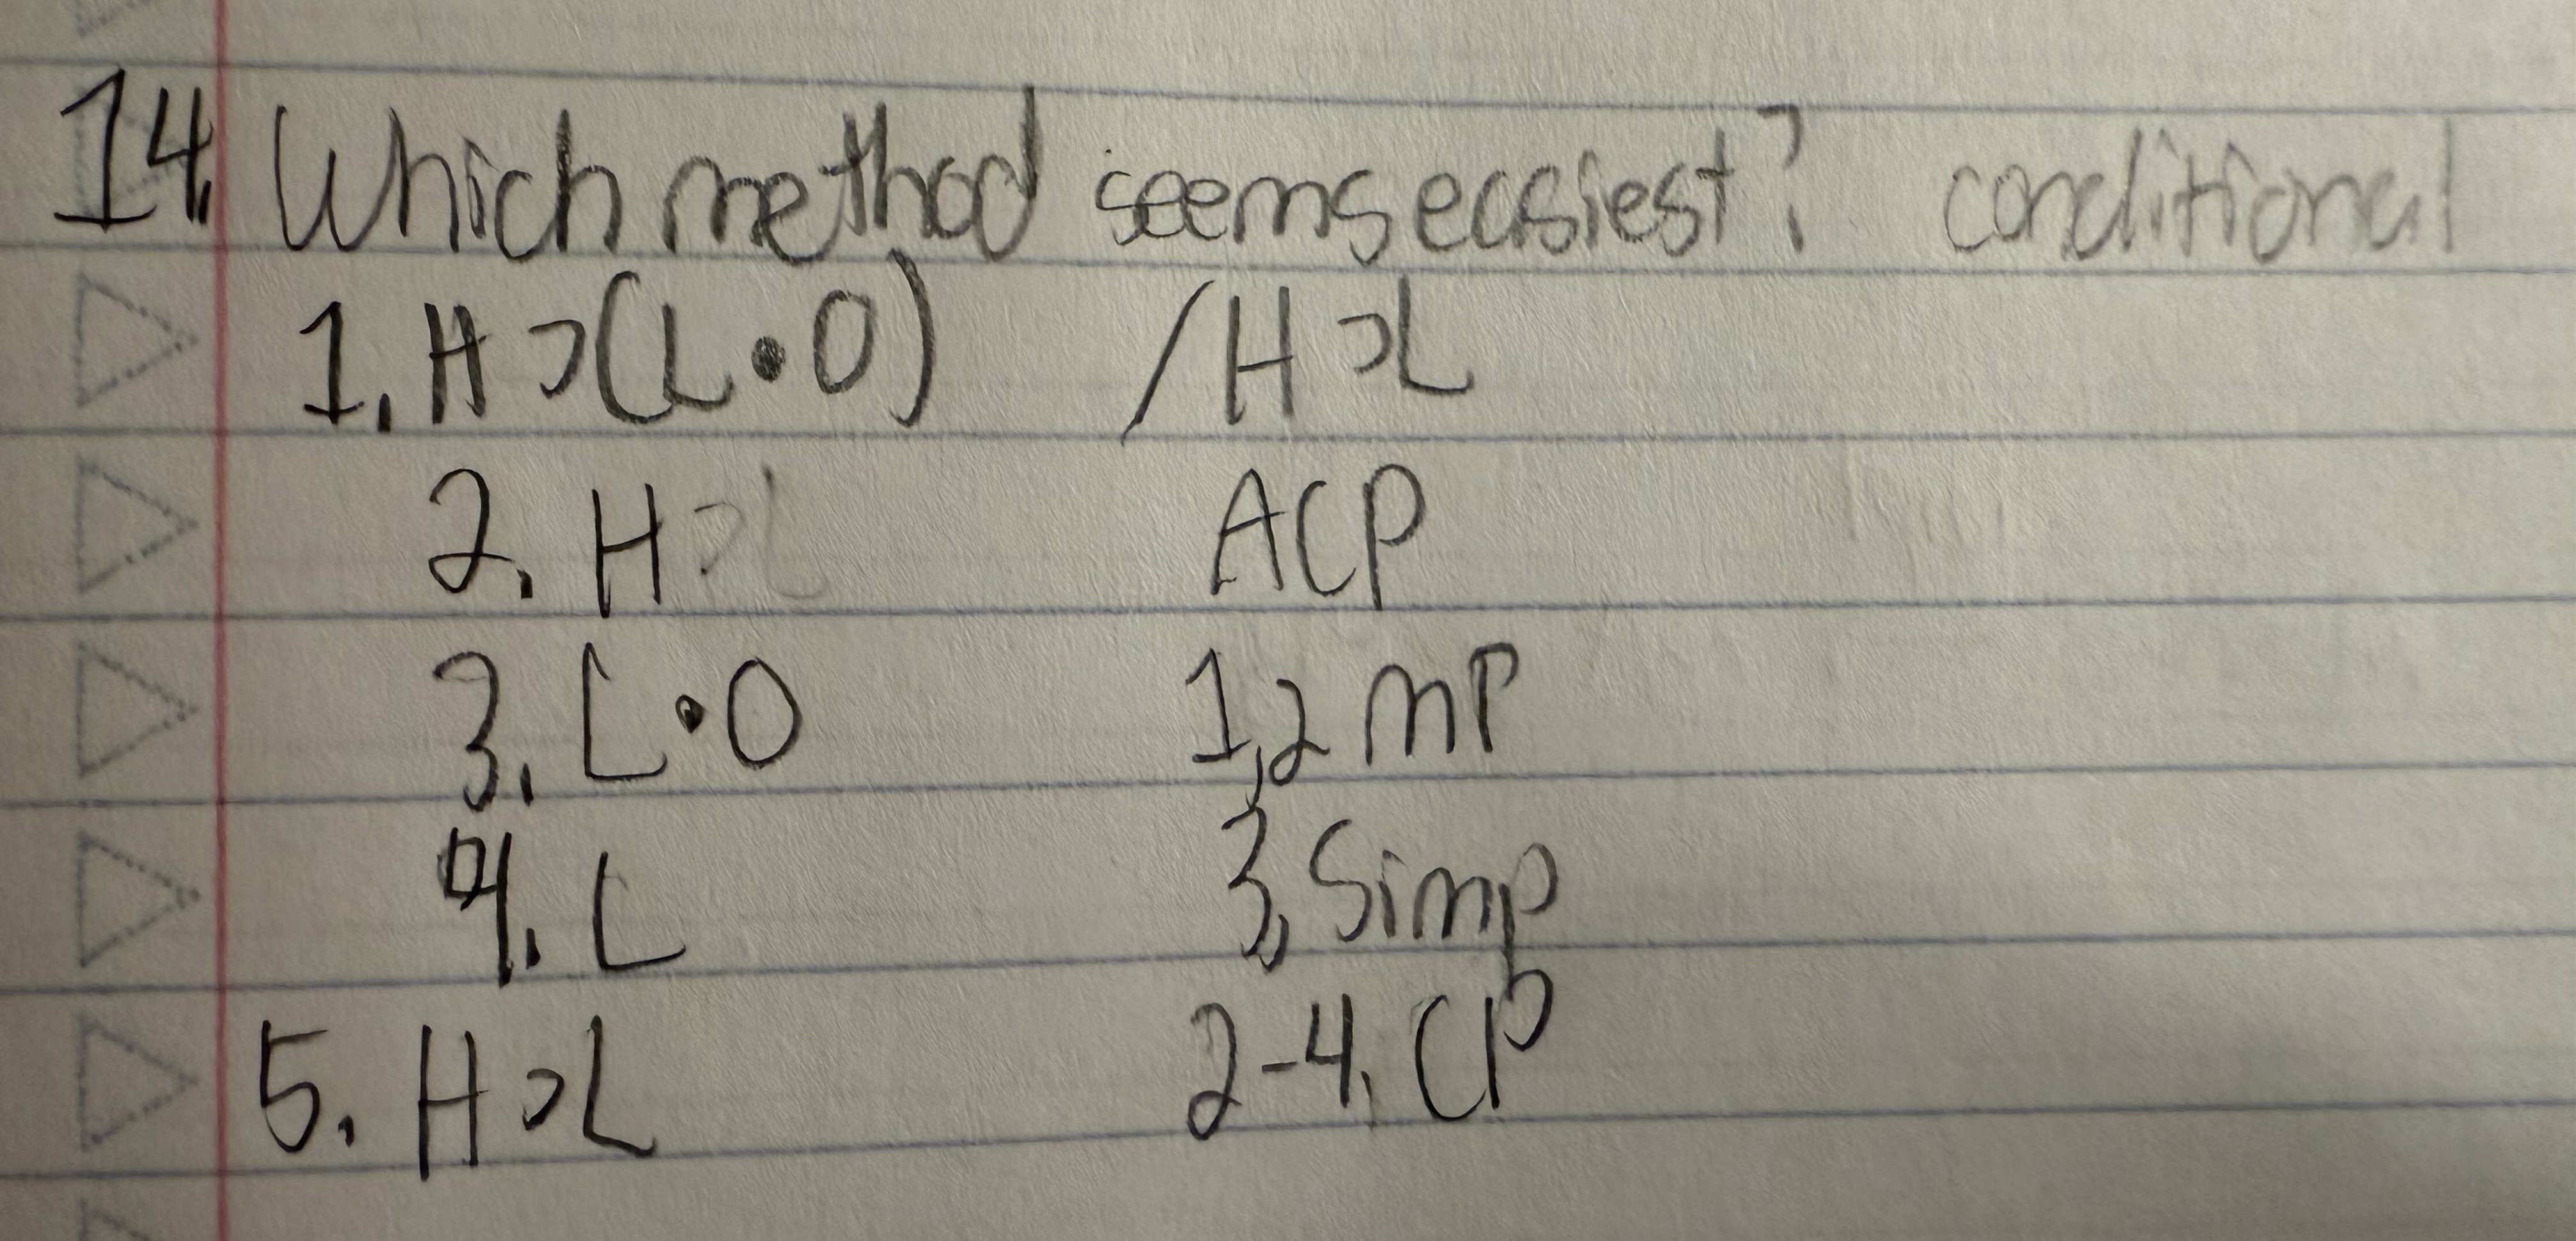 14. Which method seems easiest? conditional
1. H ⊃ (L • O) / H ⊃ L
2. H ACP
3. L • O 1,2 MP
4. L 3, Simp
5. H ⊃ L 2-4, CP